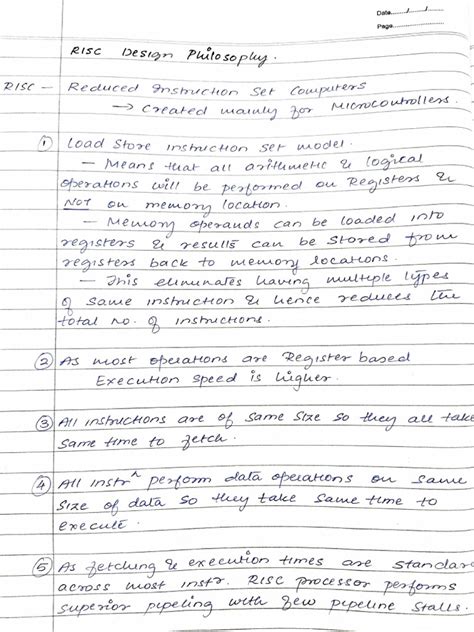 Date......./......./.......
Page.......................
RISC Design Philosophy.
RISC — Reduced Instruction Set Computers
→ Created mainly for Microcontrollers.
① Load Store instruction set model.
— Means that all arithmetic & logical
operations will be performed on Registers &
NOT on memory location.
— Memory operands can be loaded into
registers & results can be stored from
registers back to memory locations.
— This eliminates having multiple types
of same instruction & hence reduces the
total no. of instructions.
② As most operations are Register based
Execution speed is higher.
③ All instructions are of same size so they all take
same time to fetch.
④ All instrⁿ perform data operations on same
size of data so they take same time to
execute.
⑤ As fetching & execution times are standar
across most instr. RISC processor performs
superior pipeling with few pipeline stalls.